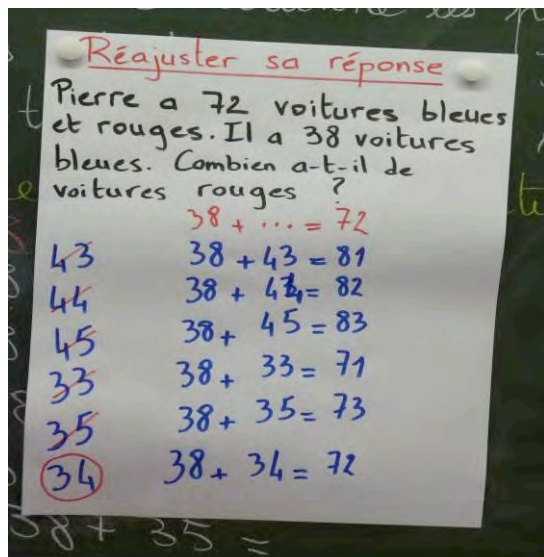 Réajuster sa réponse
Pierre a 72 voitures bleues
et rouges. Il a 38 voitures
bleues. Combien a-t-il de
voitures rouges ?
38 + ... = 72
43 38 + 43 = 81
44 38 + 44 = 82
45 38 + 45 = 83
33 38 + 33 = 71
35 38 + 35 = 73
34 38 + 34 = 72
38 + 35 =